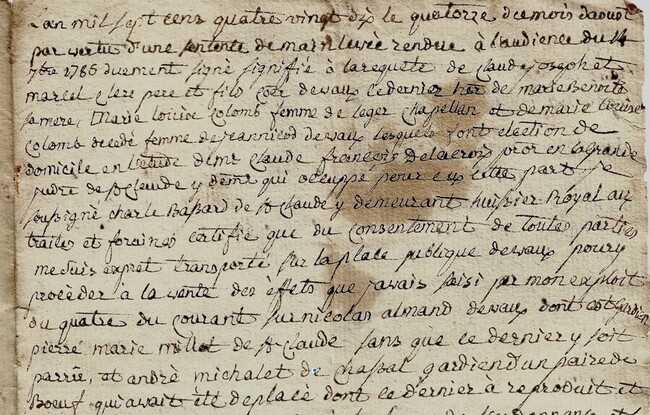 L'an mil sept cens quatre vingt dix le quatorze du mois daoust
par vertus d'une sentente de mainlevée rendue à l'audience du 14
7bre 1785 duement signé signifié à la requete de Claude joseph et
marcel clerc pere et fils de vaux ce dernier her de marie Benoite
sa mere, Marie louise Colomb femme de leger Chapellan et de marie louise
Colomb décédé femme de jeannicod de vaux lesquels font election de
domicile en l'étude de Mr Claude françois Delacroix pror en la grande
judre de st Claude y demt qui occuppe pour eux cette part je
soussigné charle Bassard de st Claude y demeurant huissier Royal aux
traites et foraines certifie que du consentement de toutes parties
me suis expret transporté sur la place publique de vaux pour y
procéder a la vente des éffets que j'avais saisi par mon exploit
du quatre du courant sur nicolas almand de vaux dont est gardien
pierre marie millet de st Claude sans que ce dernier y soit
parrie, et andré michalet de chassal gardien d'un paire de
Boeuf qui avait été deplacé dont ce dernier a reproduit et